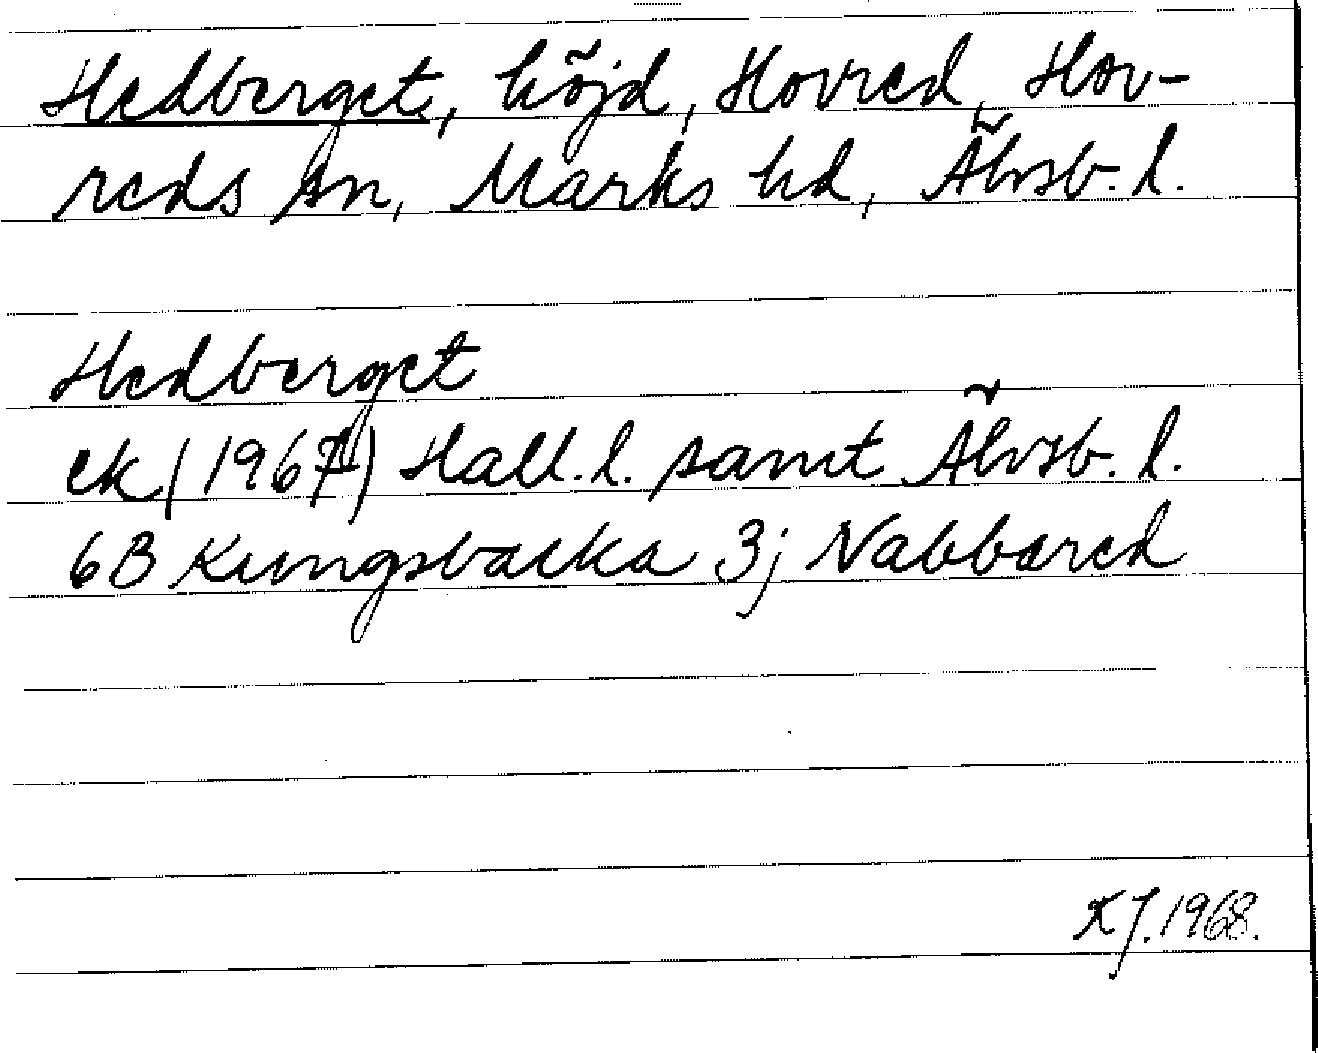 Hedberget, höjd, Horred, Hor-
reds sn, Marks hd, Älvsb. l.
Hedberget
ek (1967) Hall. l. samt Älvsb. l.
6B Kungsbacka 3j Nabbared
KJ. 1968.